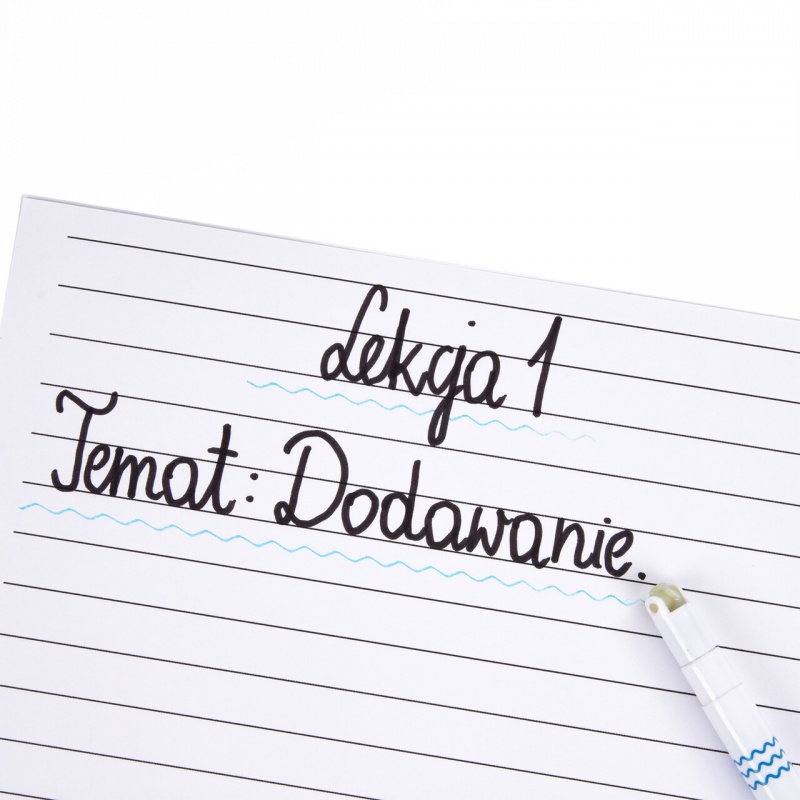 Lekcja 1
Temat: Dodawanie.